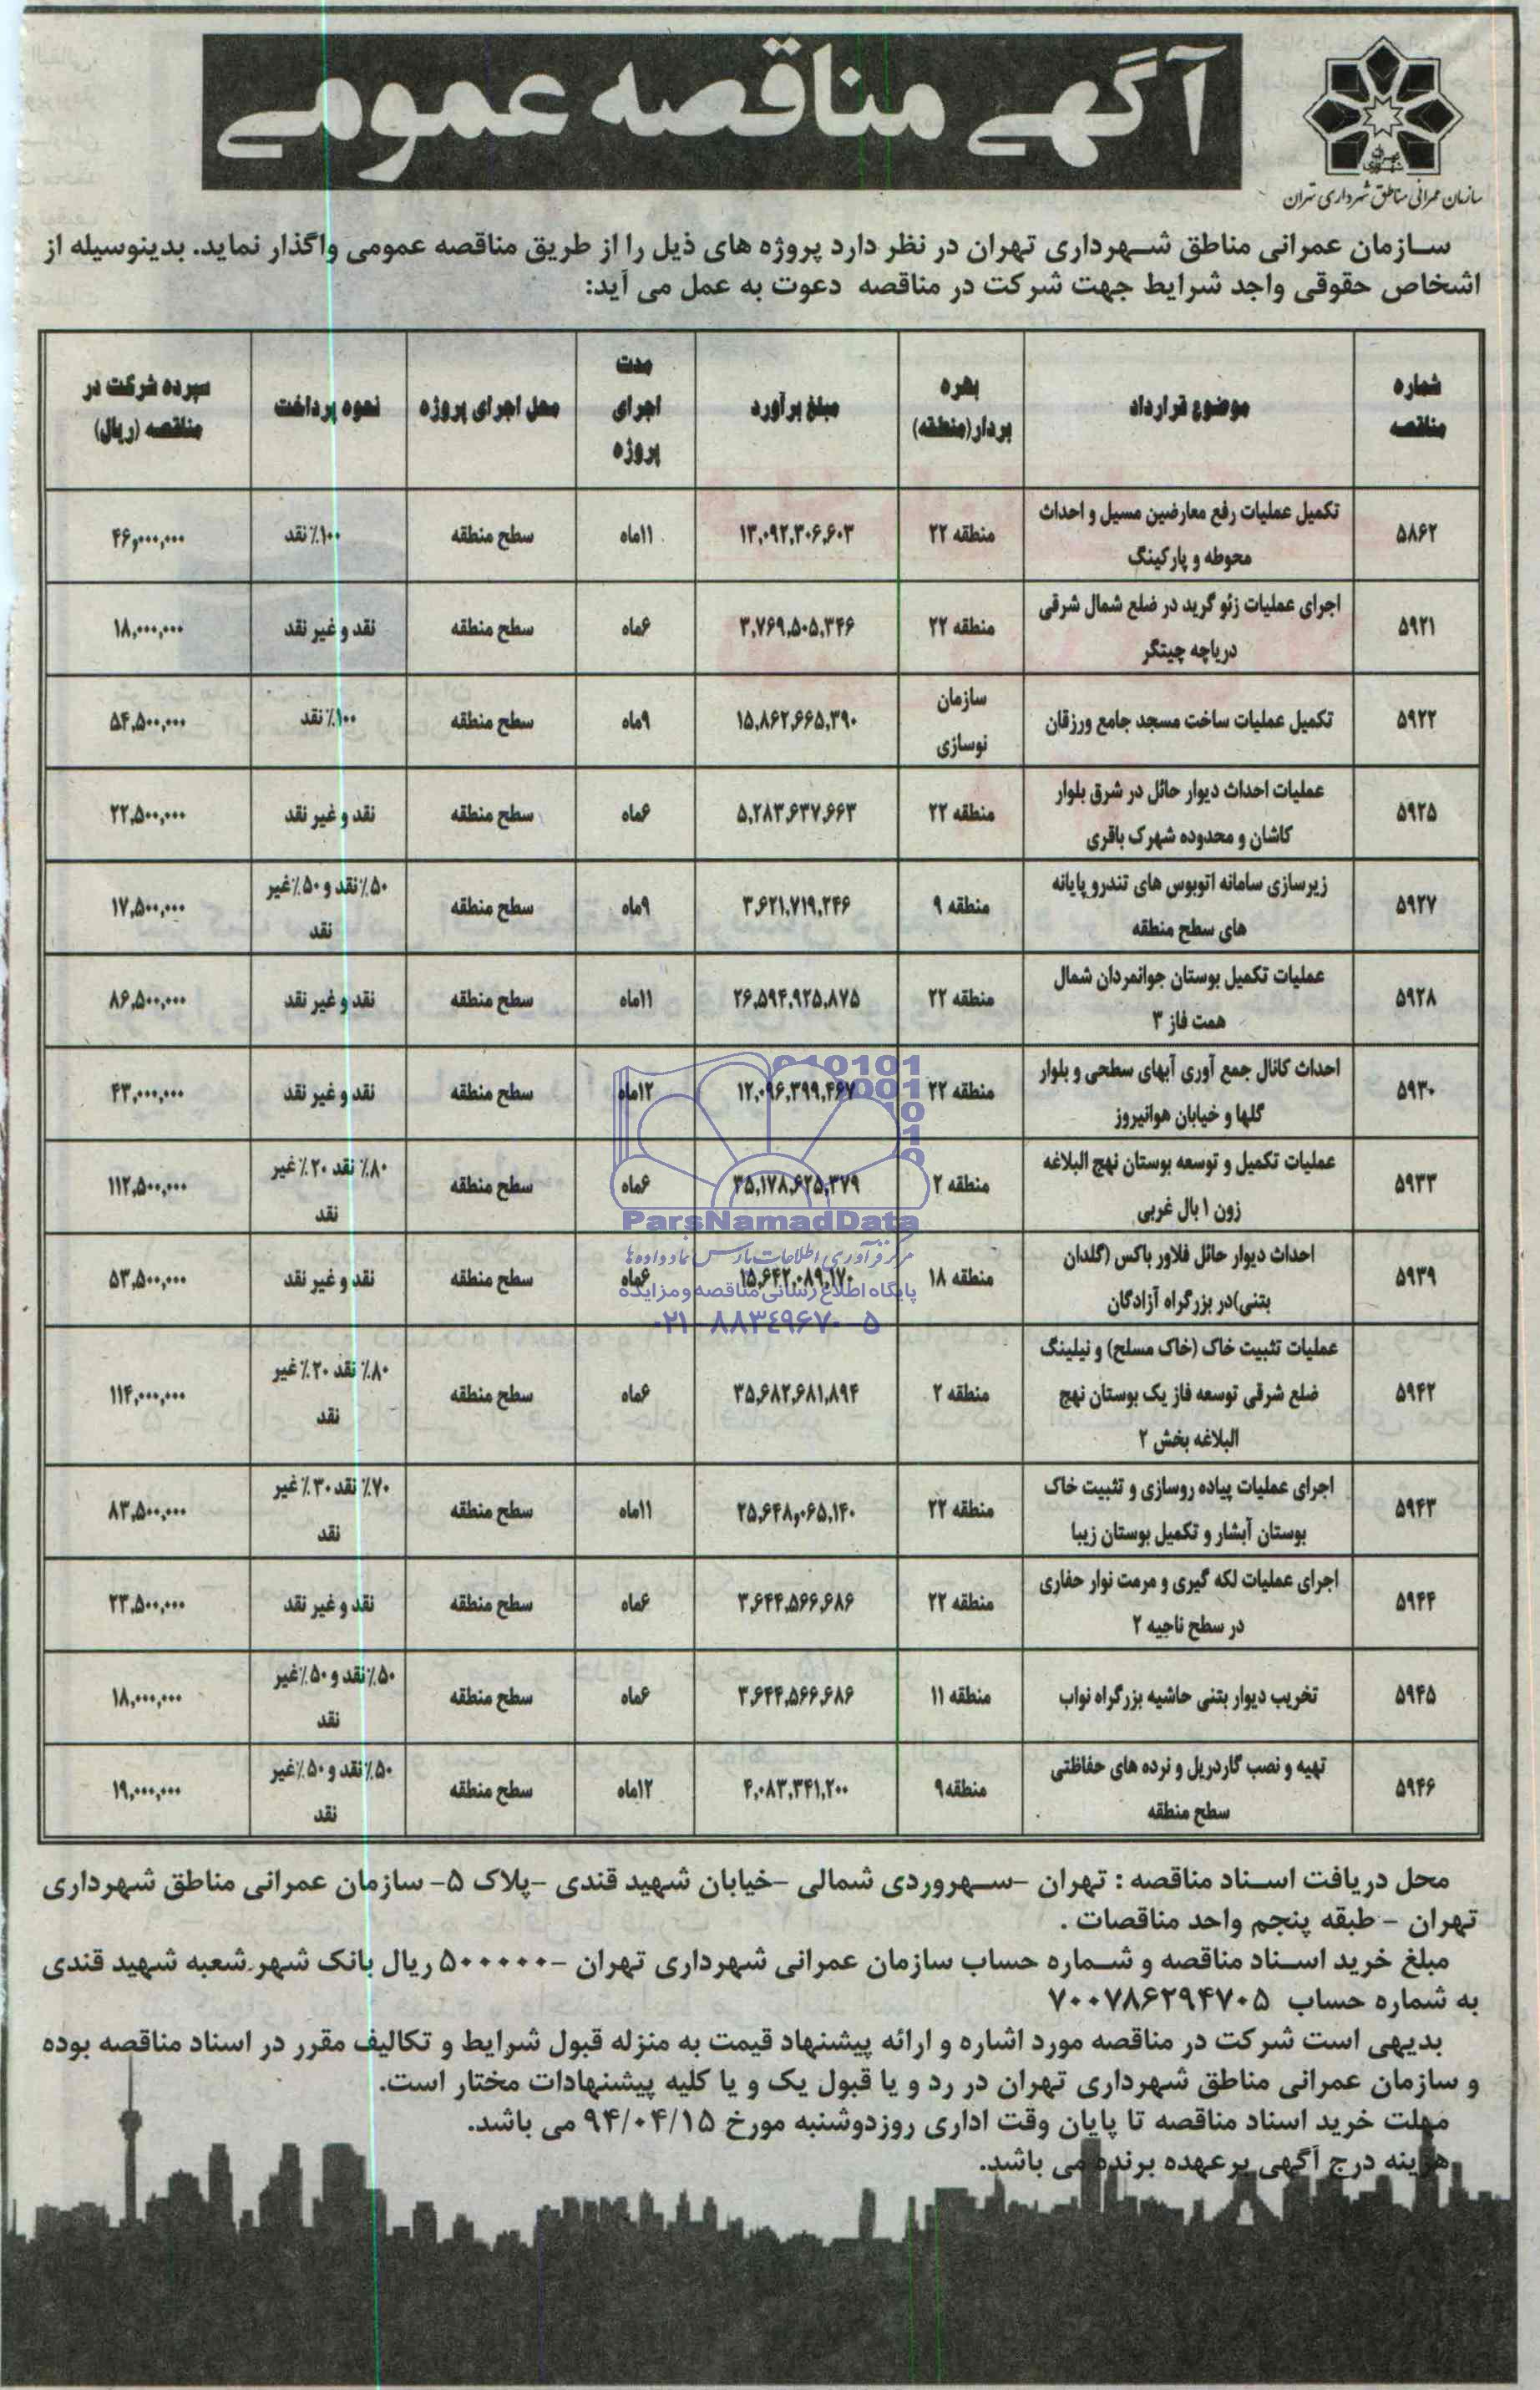 آگهی مناقصه عمومی
شهرداری تهران
سازمان عمرانی مناطق شهرداری تهران
سازمان عمرانی مناطق شهرداری تهران در نظر دارد پروژه های ذیل را از طریق مناقصه عمومی واگذار نماید. بدینوسیله از
اشخاص حقوقی واجد شرایط جهت شرکت در مناقصه دعوت به عمل می آید:
شماره مناقصه | موضوع قرارداد | بهره بردار(منطقه) | مبلغ برآورد | مدت اجرای پروژه | محل اجرای پروژه | نحوه پرداخت | سپرده شرکت در مناقصه (ریال)
۵۸۶۲ | تکمیل عملیات رفع معارضین مسیل و احداث محوطه و پارکینگ | منطقه ۲۲ | ۱۳,۰۹۲,۳۰۶,۶۰۳ | ۱۱ماه | سطح منطقه | ۱۰۰٪نقد | ۴۶,۰۰۰,۰۰۰
۵۹۲۱ | اجرای عملیات زئو گرید در ضلع شمال شرقی دریاچه چیتگر | منطقه ۲۲ | ۳,۷۶۹,۵۰۵,۳۴۶ | ۶ماه | سطح منطقه | نقد و غیر نقد | ۱۸,۰۰۰,۰۰۰
۵۹۲۲ | تکمیل عملیات ساخت مسجد جامع ورزقان | سازمان نوسازی | ۱۵,۸۶۲,۶۶۵,۳۹۰ | ۹ماه | سطح منطقه | ۱۰۰٪نقد | ۵۴,۵۰۰,۰۰۰
۵۹۲۵ | عملیات احداث دیوار حائل در شرق بلوار کاشان و محدوده شهرک باقری | منطقه ۲۲ | ۵,۲۸۳,۶۳۷,۶۶۳ | ۶ماه | سطح منطقه | نقد و غیر نقد | ۲۲,۵۰۰,۰۰۰
۵۹۲۷ | زیرسازی سامانه اتوبوس های تندرو پایانه های سطح منطقه | منطقه ۹ | ۳,۶۲۱,۷۱۹,۲۴۶ | ۹ماه | سطح منطقه | ۵۰٪نقد و ۵۰٪غیر نقد | ۱۷,۵۰۰,۰۰۰
۵۹۲۸ | عملیات تکمیل بوستان جوانمردان شمال همت فاز ۳ | منطقه ۲۲ | ۲۶,۵۹۴,۹۲۵,۸۷۵ | ۱۱ماه | سطح منطقه | نقد و غیر نقد | ۸۶,۵۰۰,۰۰۰
۵۹۳۰ | احداث کانال جمع آوری آبهای سطحی و بلوار گلها و خیابان هوانیروز | منطقه ۲۲ | ۱۲,۰۹۶,۳۹۹,۴۶۷ | ۱۲ماه | سطح منطقه | نقد و غیر نقد | ۴۳,۰۰۰,۰۰۰
۵۹۳۳ | عملیات تکمیل و توسعه بوستان نهج البلاغه زون ۱ بال غربی | منطقه ۲ | ۳۵,۱۷۸,۶۲۵,۳۷۹ | ۶ماه | سطح منطقه | ۸۰٪ نقد ۲۰٪غیر نقد | ۱۱۲,۵۰۰,۰۰۰
۵۹۳۹ | احداث دیوار حائل فلاور باکس (گلدان بتنی)در بزرگراه آزادگان | منطقه ۱۸ | ۱۵,۶۴۲,۰۸۹,۱۷۰ | ۶ماه | سطح منطقه | نقد و غیر نقد | ۵۳,۵۰۰,۰۰۰
۵۹۴۲ | عملیات تثبیت خاک (خاک مسلح) و نیلینگ ضلع شرقی توسعه فاز یک بوستان نهج البلاغه بخش ۲ | منطقه ۲ | ۳۵,۶۸۲,۶۸۱,۸۹۴ | ۶ماه | سطح منطقه | ۸۰٪ نقد ۲۰٪غیر نقد | ۱۱۴,۰۰۰,۰۰۰
۵۹۴۳ | اجرای عملیات پیاده روسازی و تثبیت خاک بوستان آبشار و تکمیل بوستان زیبا | منطقه ۲۲ | ۲۵,۶۴۸,۰۶۵,۱۴۰ | ۱۱ماه | سطح منطقه | ۷۰٪ نقد۳۰٪غیر نقد | ۸۳,۵۰۰,۰۰۰
۵۹۴۴ | اجرای عملیات لکه گیری و مرمت نوار حفاری در سطح ناحیه ۲ | منطقه ۲۲ | ۳,۶۴۴,۵۶۶,۶۸۶ | ۶ماه | سطح منطقه | نقد و غیر نقد | ۲۳,۵۰۰,۰۰۰
۵۹۴۵ | تخریب دیوار بتنی حاشیه بزرگراه نواب | منطقه ۱۱ | ۳,۶۴۴,۵۶۶,۶۸۶ | ۶ماه | سطح منطقه | ۵۰٪نقد و ۵۰٪غیر نقد | ۱۸,۰۰۰,۰۰۰
۵۹۴۶ | تهیه و نصب گاردریل و نرده های حفاظتی سطح منطقه | منطقه۹ | ۴,۰۸۳,۳۴۱,۲۰۰ | ۱۲ماه | سطح منطقه | ۵۰٪نقد و ۵۰٪غیر نقد | ۱۹,۰۰۰,۰۰۰
ParsNamadData
مرکز فرآوری اطلاعات پارس نماد داده ها
پایگاه اطلاع رسانی مناقصه و مزایده
۰۲۱-۸۸۳۴۹۶۷۰-۵
محل دریافت اسناد مناقصه : تهران -سهروردی شمالی -خیابان شهید قندی -پلاک ۵- سازمان عمرانی مناطق شهرداری
تهران - طبقه پنجم واحد مناقصات .
مبلغ خرید اسناد مناقصه و شماره حساب سازمان عمرانی شهرداری تهران -۵۰۰۰۰۰ ریال بانک شهر شعبه شهید قندی
به شماره حساب ۷۰۰۷۸۶۲۹۴۷۰۵
بدیهی است شرکت در مناقصه مورد اشاره و ارائه پیشنهاد قیمت به منزله قبول شرایط و تکالیف مقرر در اسناد مناقصه بوده
و سازمان عمرانی مناطق شهرداری تهران در رد و یا قبول یک و یا کلیه پیشنهادات مختار است.
مهلت خرید اسناد مناقصه تا پایان وقت اداری روزدوشنبه مورخ ۹۴/۰۴/۱۵ می باشد.
هزینه درج آگهی برعهده برنده می باشد.